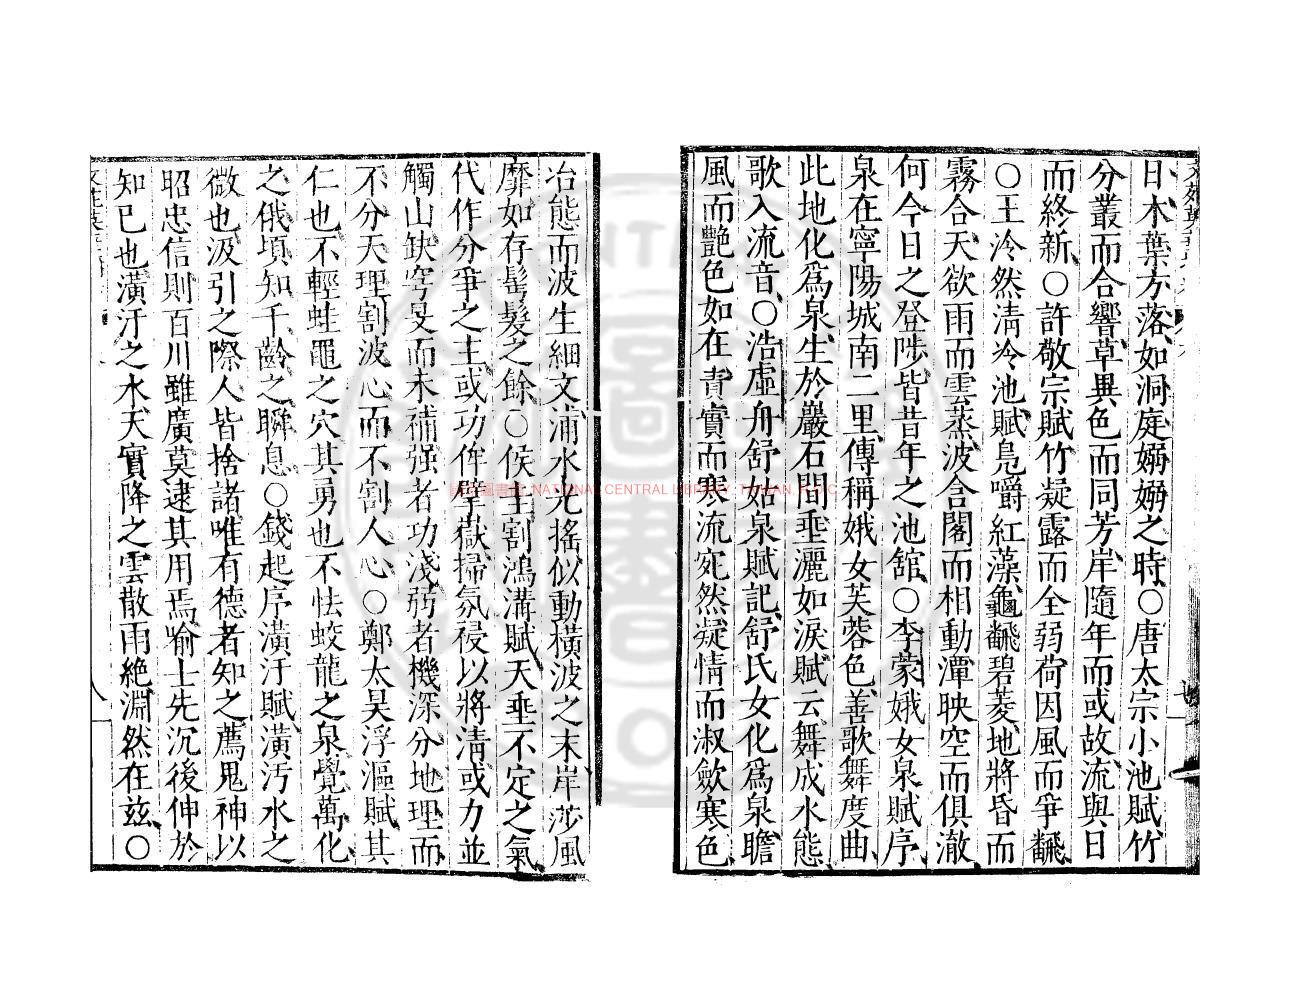 日木葉方落如洞庭嫋嫋之時○唐太宗小池賦竹
分叢而合響草異色而同芳岸隨年而或故流與日
而終新○許敬宗賦竹凝露而全弱荷因風而爭飜
○王泠然清泠池賦鳧嚼紅藻龜飜碧菱地將昏而
霧合天欲雨而雲蒸波含閣而相動潭映空而俱澈
何今日之登陟皆昔年之池館○李蒙娥女泉賦序
泉在寧陽城南二里傳稱娥女芙蓉色善歌舞度曲
此地化爲泉生於巖石間垂灑如淚賦云舞成水態
歌入流音○浩虛舟舒姑泉賦記舒氏女化爲泉瞻
風而艷色如在責實而寒流宛然凝情而淑歛寒色
冶態而波生細文浦水光搖似動橫波之末岸莎風
靡如存髩髮之餘○侯主割鴻溝賦天垂不定之氣
代作分爭之主或功侔擘嶽掃氛祲以將清或力並
觸山缺穹旻而未補强者功淺弱者機深分地理而
不分天理割波心而不割人心○鄭太昊浮漚賦其
仁也不輕蛙黽之穴其勇也不怯蛟龍之泉覺萬化
之俄頃知千齡之瞬息○錢起序潢汙賦潢汚水之
微也汲引之際人皆捨諸唯有德者知之薦鬼神以
昭忠信則百川雖廣莫逮其用焉喻士先沉後伸於
知已也潢汙之水天實降之雲散雨絶淵然在玆○
國家圖書館 NATIONAL CENTRAL LIBRARY, TAIWAN, R.O.C